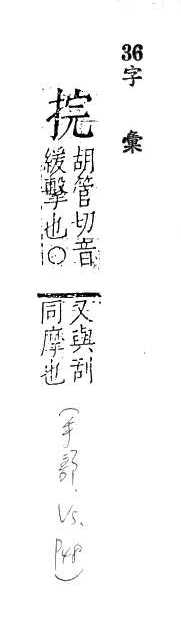 36字 彙
捖
胡管切音
緩擊也〇
又與刮
同摩也
(手部. Vs. P48)